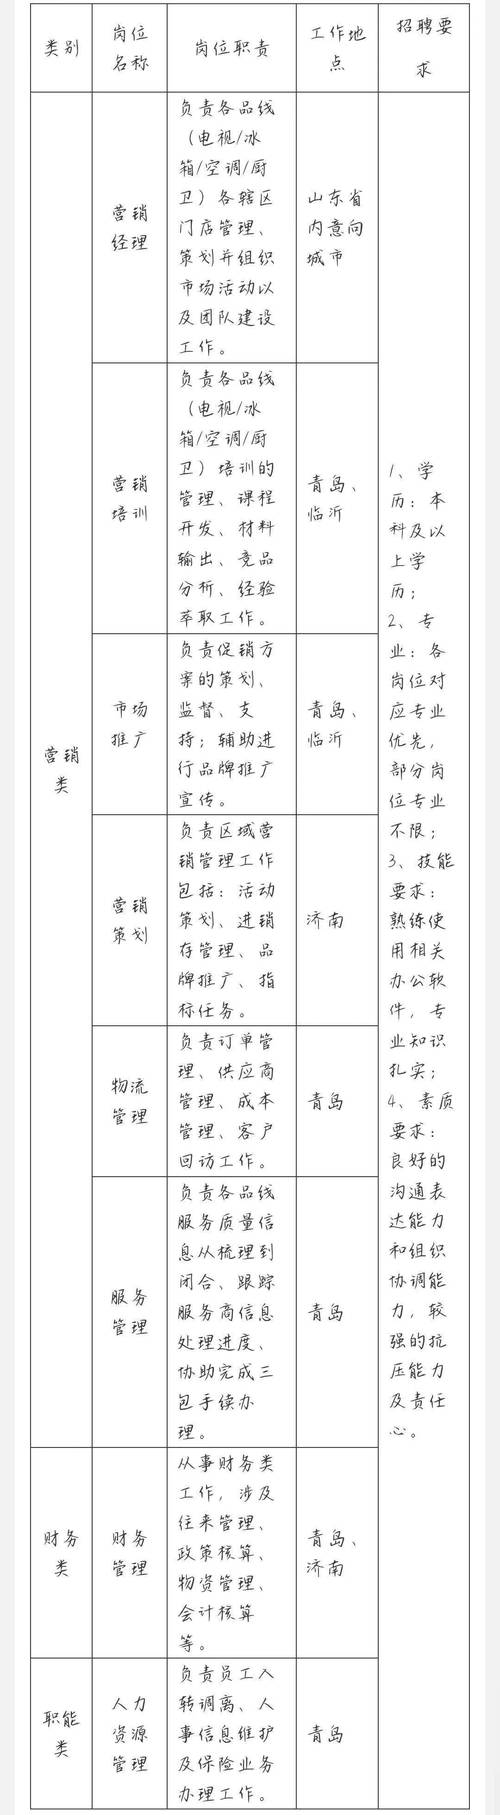 类别
岗位
名称
岗位职责
工作地
点
招聘要
求
营销
类
营销
经理
负责各品线
（电视/冰
箱/空调/厨
卫）各辖区
门店管理、
策划并组织
市场活动以
及团队建设
工作。
山东省
内意向
城市
营销
培训
负责各品线
（电视/冰
箱/空调/厨
卫）培训的
管理、课程
开发、材料
输出、竞品
分析、经验
萃取工作。
青岛、
临沂
市场
推广
负责促销方
案的策划、
监督、支
持；辅助进
行品牌推广
宣传。
青岛、
临沂
营销
策划
负责区域营
销管理工作
包括：活动
策划、进销
存管理、品
牌推广、指
标任务。
济南
物流
管理
负责订单管
理、供应商
管理、成本
管理、客户
回访工作。
青岛
服务
管理
负责各品线
服务质量信
息从梳理到
闭合、跟踪
服务商信息
处理进度、
协助完成三
包手续办
理。
青岛
1、学
历：本
科及以
上学
历；
2、专
业：各
岗位对
应专业
优先，
部分岗
位专业
不限；
3、技能
要求：
熟练使
用相关
办公软
件，专
业知识
扎实；
4、素质
要求：
良好的
沟通表
达能力
和组织
协调能
力，较
强的抗
压能力
及责任
心。
财务
类
财务
管理
从事财务类
工作，涉及
往来管理、
政策核算、
物资管理、
会计核算
等。
青岛、
济南
职能
类
人力
资源
管理
负责员工入
转调离、人
事信息维护
及保险业务
办理工作。
青岛